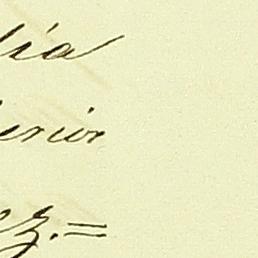 lia
erior
ez.=